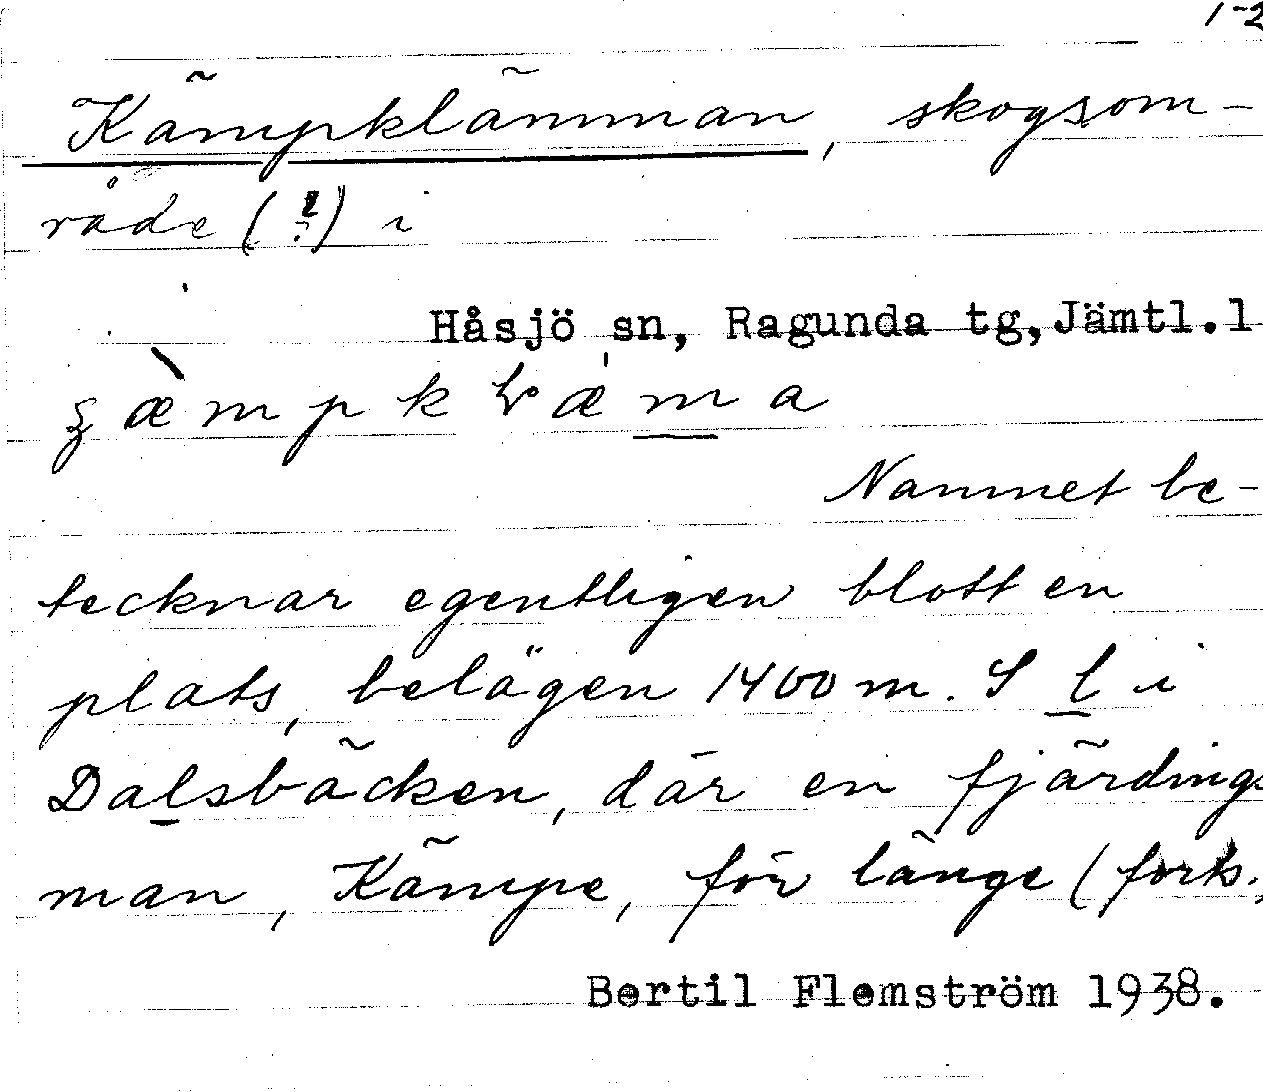 1-2
Kämpklämman, skogsom-
råde (?) i
Håsjö sn, Ragunda tg, Jämtl.l
Namnet be-
tecknar egentligen blott en
plats, belägen 1400 m. S l i
Dalsbäcken, där en fjärdings
man, Kämpe, för länge (forts.)
Bertil Flemström 1938.